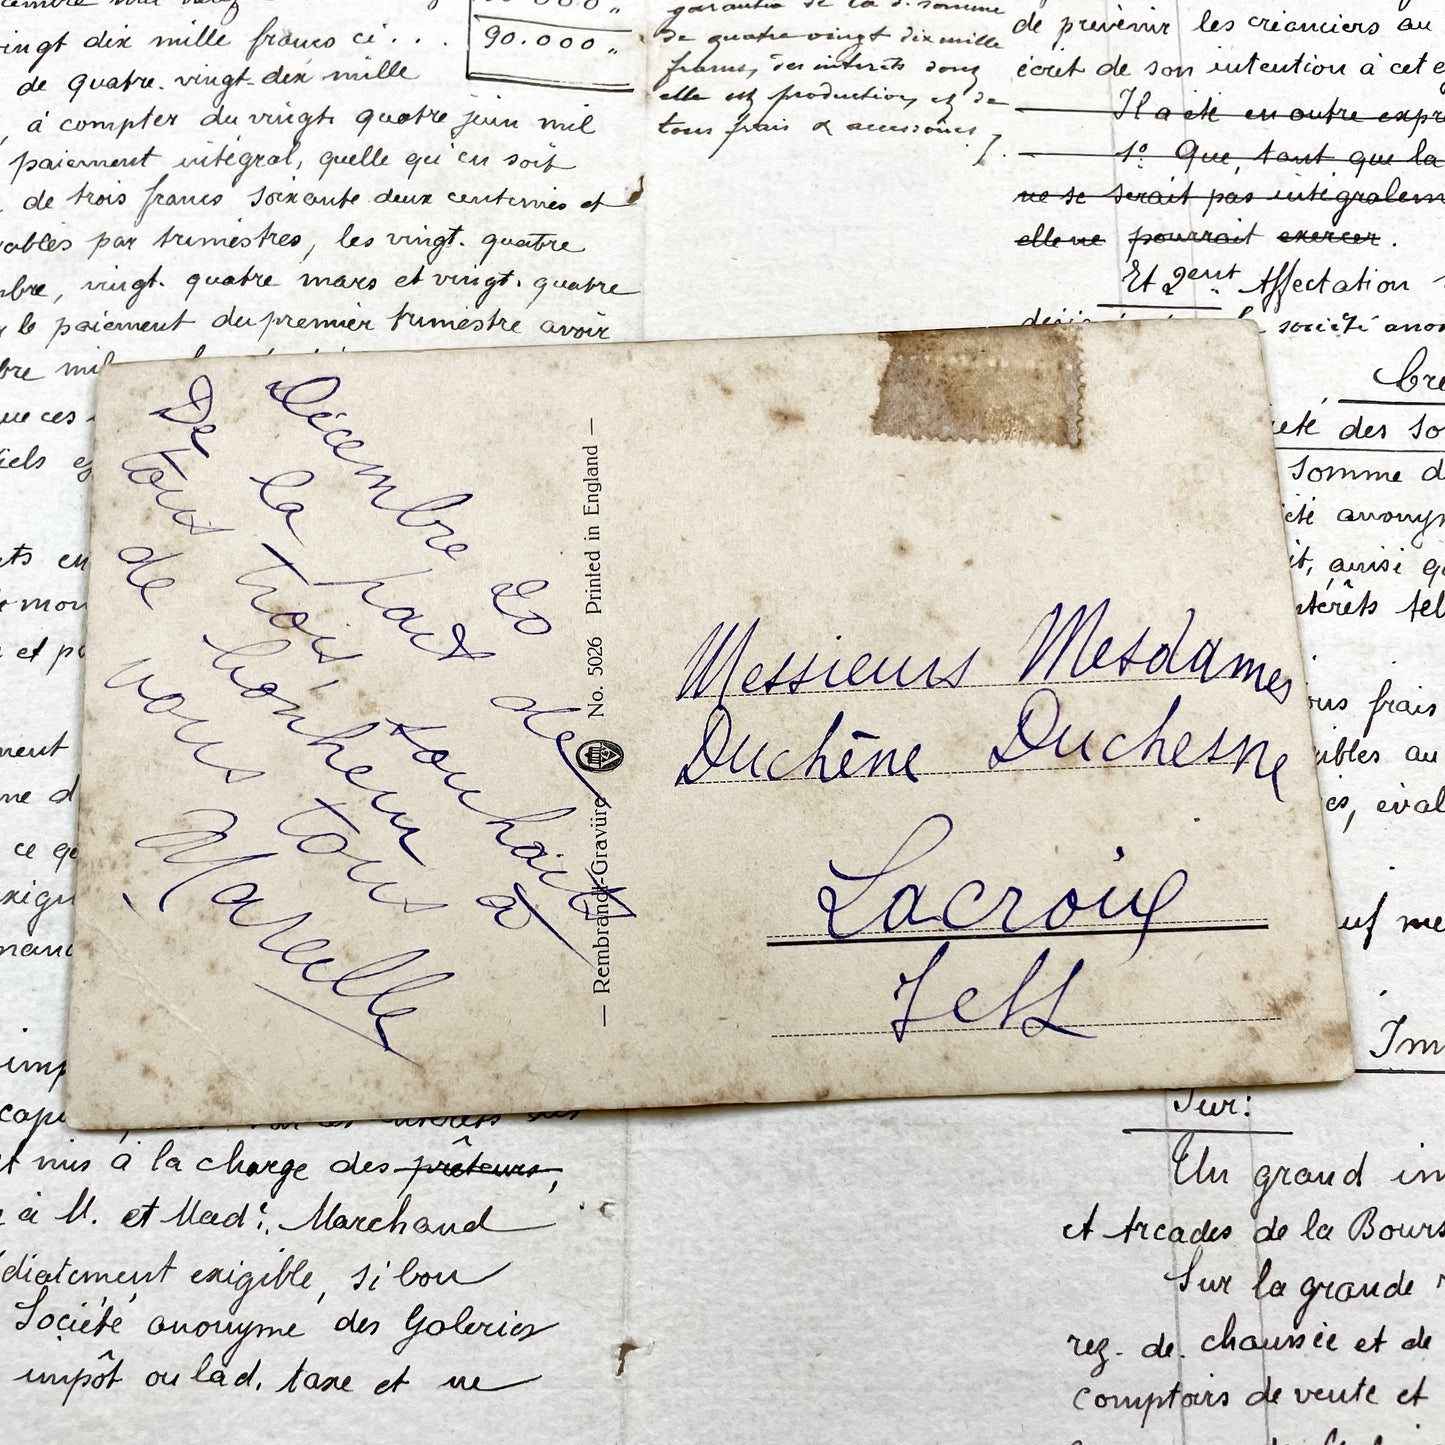 vingt dix mille francs ci . . .
90.000 „
de quatre-vingt-dix mille
, à compter du vingt quatre juin mil
paiement intégral, quelle qu'en soit
de trois francs soixante deux centimes et
par trimestres, les vingt-quatre
vingt-quatre mars et vingt-quatre
le paiement du premier trimestre avoir
garantie de la d. somme
de quatre vingt dix mille
francs, des intérêts dont
elle est production, et de
tous frais & accessoires
de prévenir les créanciers au
écrit de son intention à cet
Il a été en outre expr
1° Que, tant que la
ne se serait pas intégralem
elle ne pourrait exercer.
Et 2ent Affectation
société anon
des So
Somme d
été anonym
ainsi q
intérêts tel
frais
Décembre 20
De la part de
tous trois, souhaits
de bonheur à
vous tous
Marcelle
— Rembrandt-Gravüre No. 5026 Printed in England —
Messieurs Mesdames
Duchêne Duchesne
Lacroix
Jette
Sur:
et mis à la charge des prêteurs,
à M. et Made. Marchand
exigible, si bon
Société anonyme des Galeries
impôt ou lad. taxe et ne
Un grand im
et Arcades de la Bours
Sur la grande
rez-de-chaussée et de
comptoirs de vente et